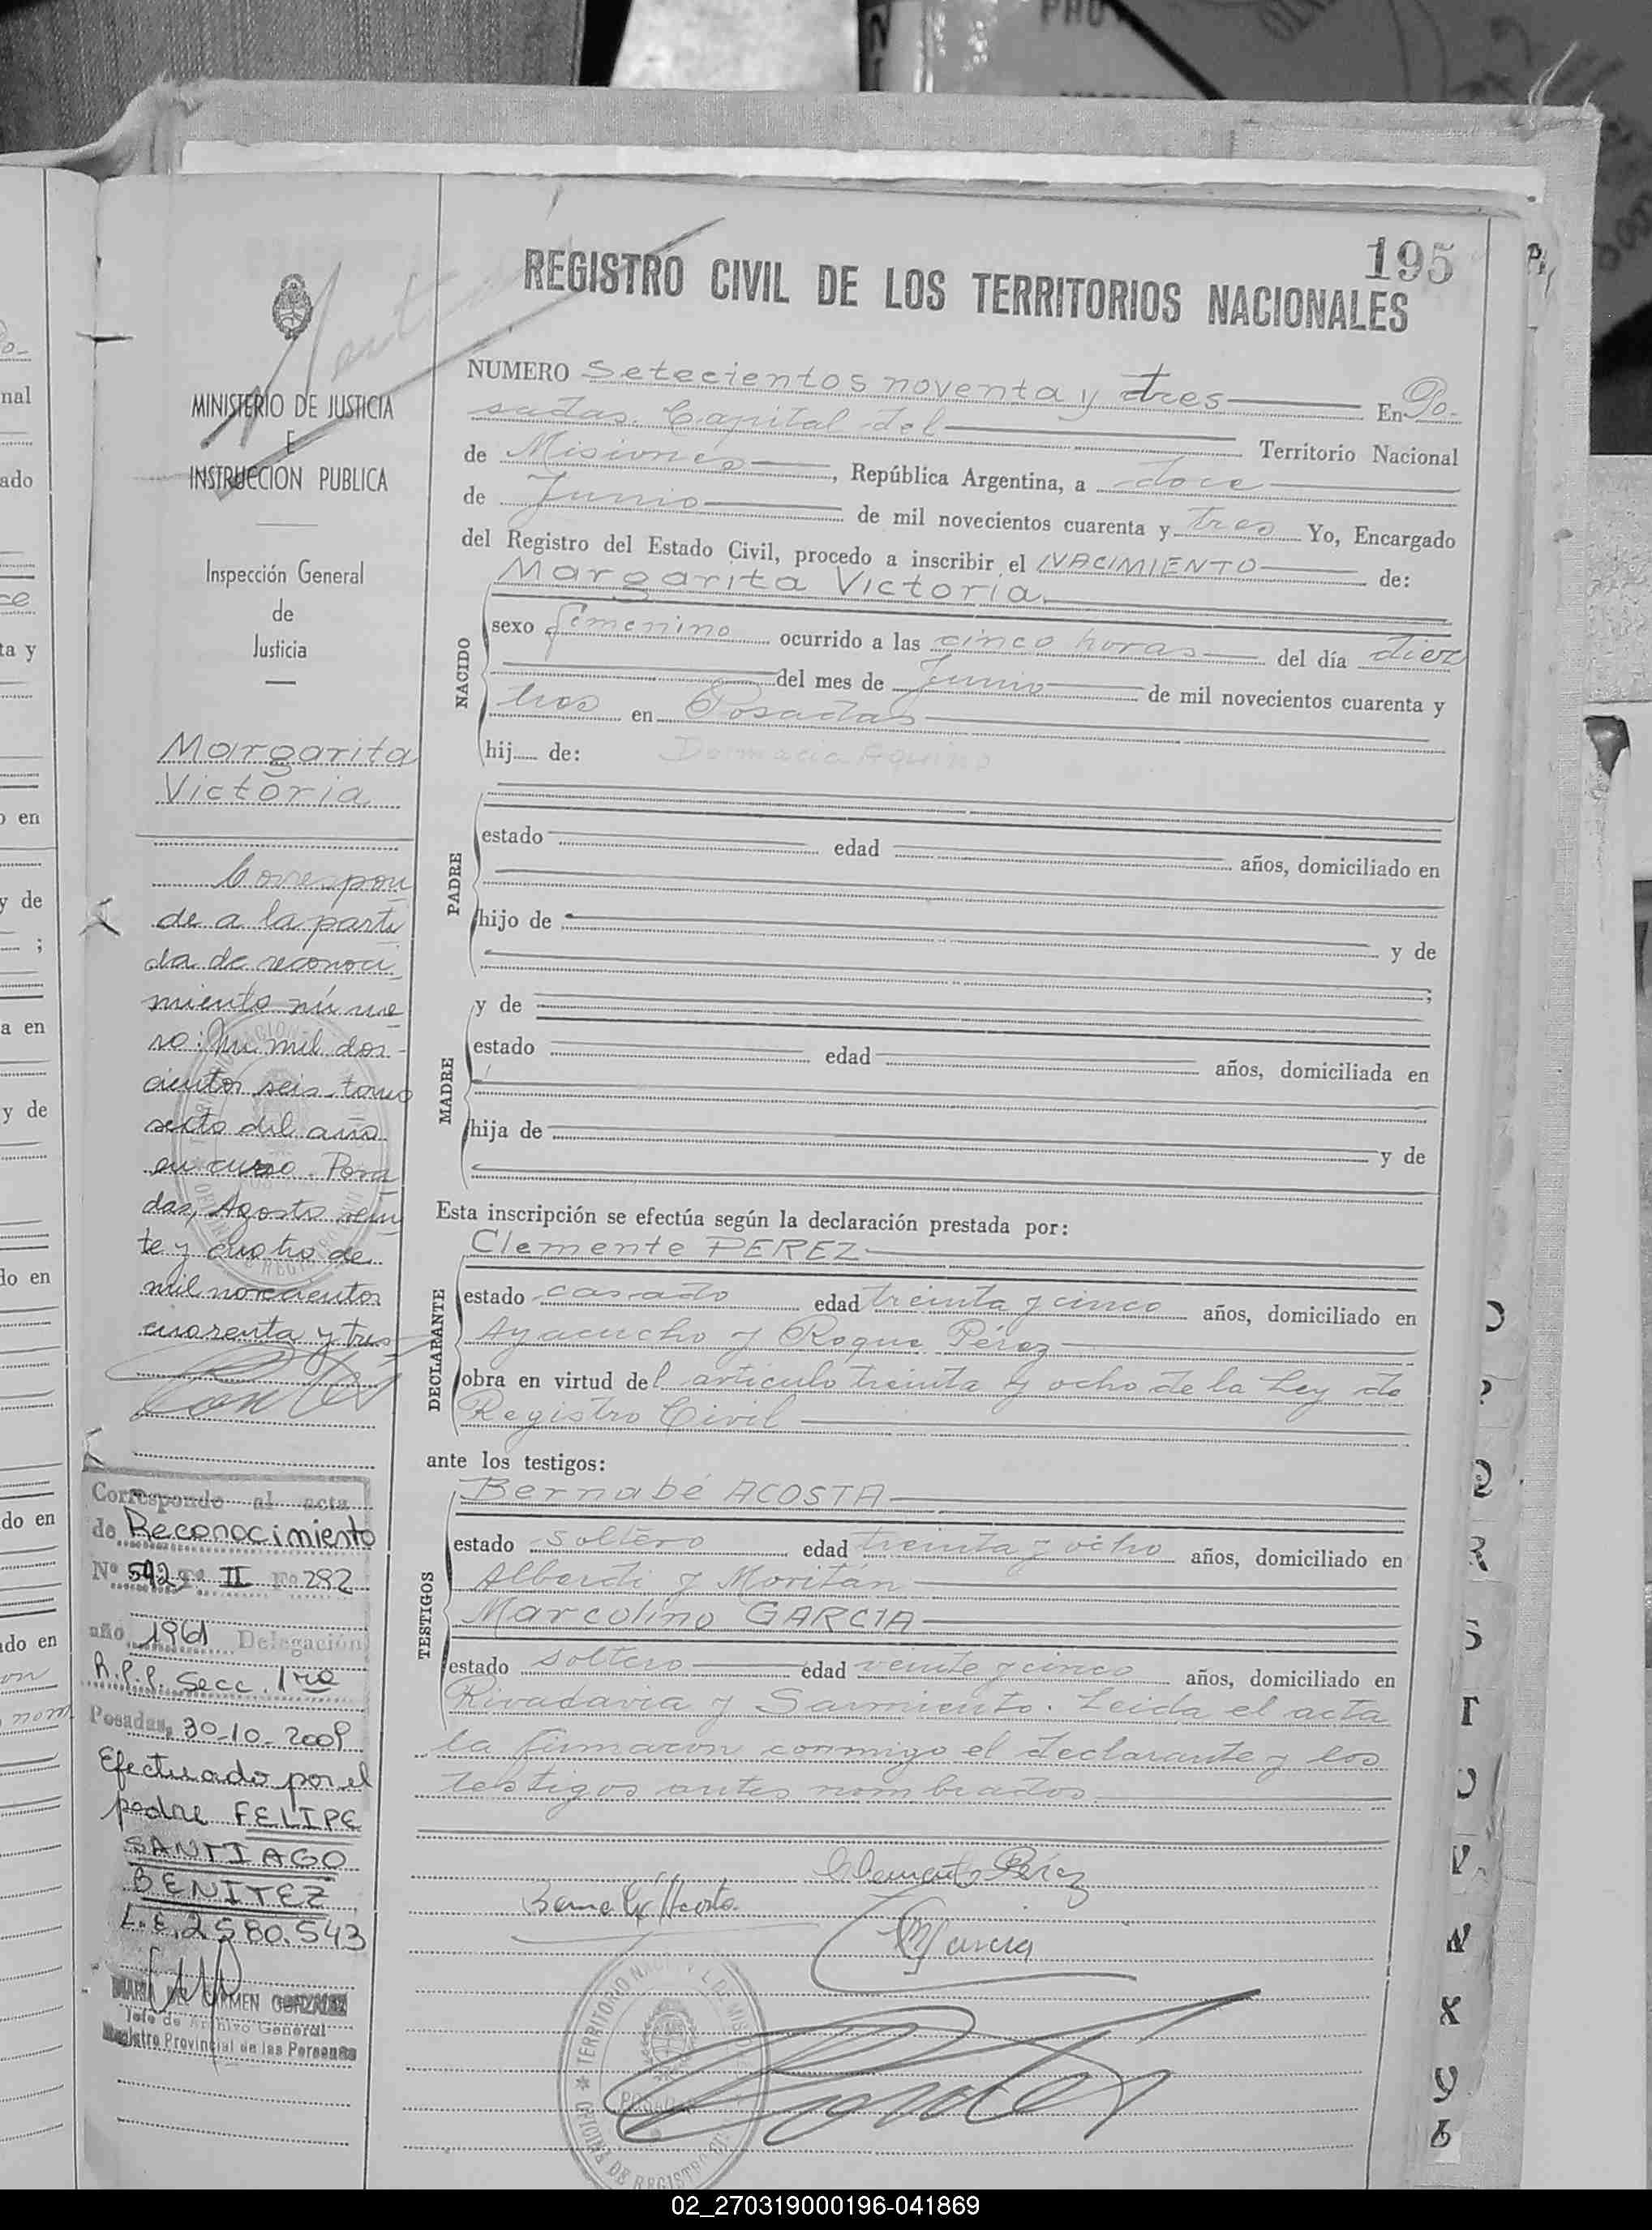 195
REGISTRO CIVIL DE LOS TERRITORIOS NACIONALES
MINISTERIO DE JUSTICIA
E
INSTRUCCION PUBLICA
Inspección General
de
Justicia
Margarita
Victoria
Correspon
de a la parti
da de reconoci
miento núme
ro: mil dos
cientos seis tomo
sexto del año
en curso. Posa
das, Agosto vein
te y cuatro de
mil novecientos
cuarenta y tres
Corresponde al acta
de Reconocimiento
Nº 592 Tº II Fº 282
año 1961 Delegación
R.P.P. Secc. 1ra
Posadas, 30-10-2009
Efectuado por el
padre FELIPE
SANTIAGO
BENITEZ
L.E. 2580.543
MARIA DEL CARMEN GONZALEZ
Jefe de Archivo General
Registro Provincial de las Personas
NUMERO Setecientos noventa y tres En Po-
sadas. Capital del Territorio Nacional
de Misiones, República Argentina, a doce
de Junio de mil novecientos cuarenta y tres Yo, Encargado
del Registro del Estado Civil, procedo a inscribir el NACIMIENTO de:
NACIDO
Margarita Victoria
sexo femenino ocurrido a las cinco horas del día diez
del mes de Junio de mil novecientos cuarenta y
tres en Posadas
hij de: Aquino
PADRE
estado edad años, domiciliado en
hijo de y de
MADRE
y de
estado edad años, domiciliada en
hija de y de
Esta inscripción se efectúa según la declaración prestada por:
DECLARANTE
Clemente PEREZ
estado casado edad treinta y cinco años, domiciliado en
Ayacucho y Roque Pérez
obra en virtud del artículo treinta y ocho de la Ley de
Registro Civil
ante los testigos:
TESTIGOS
Bernabé ACOSTA
estado soltero edad treinta y ocho años, domiciliado en
Alberdi y Moritán
Marcolino GARCIA
estado soltero edad veinte y cinco años, domiciliado en
Rivadavia y Sarmiento. Leida el acta
la firmaron conmigo el declarante y los
testigos antes nombrados.
Clemente Pérez
Bernabé Acosta
M García
02_270319000196-041869